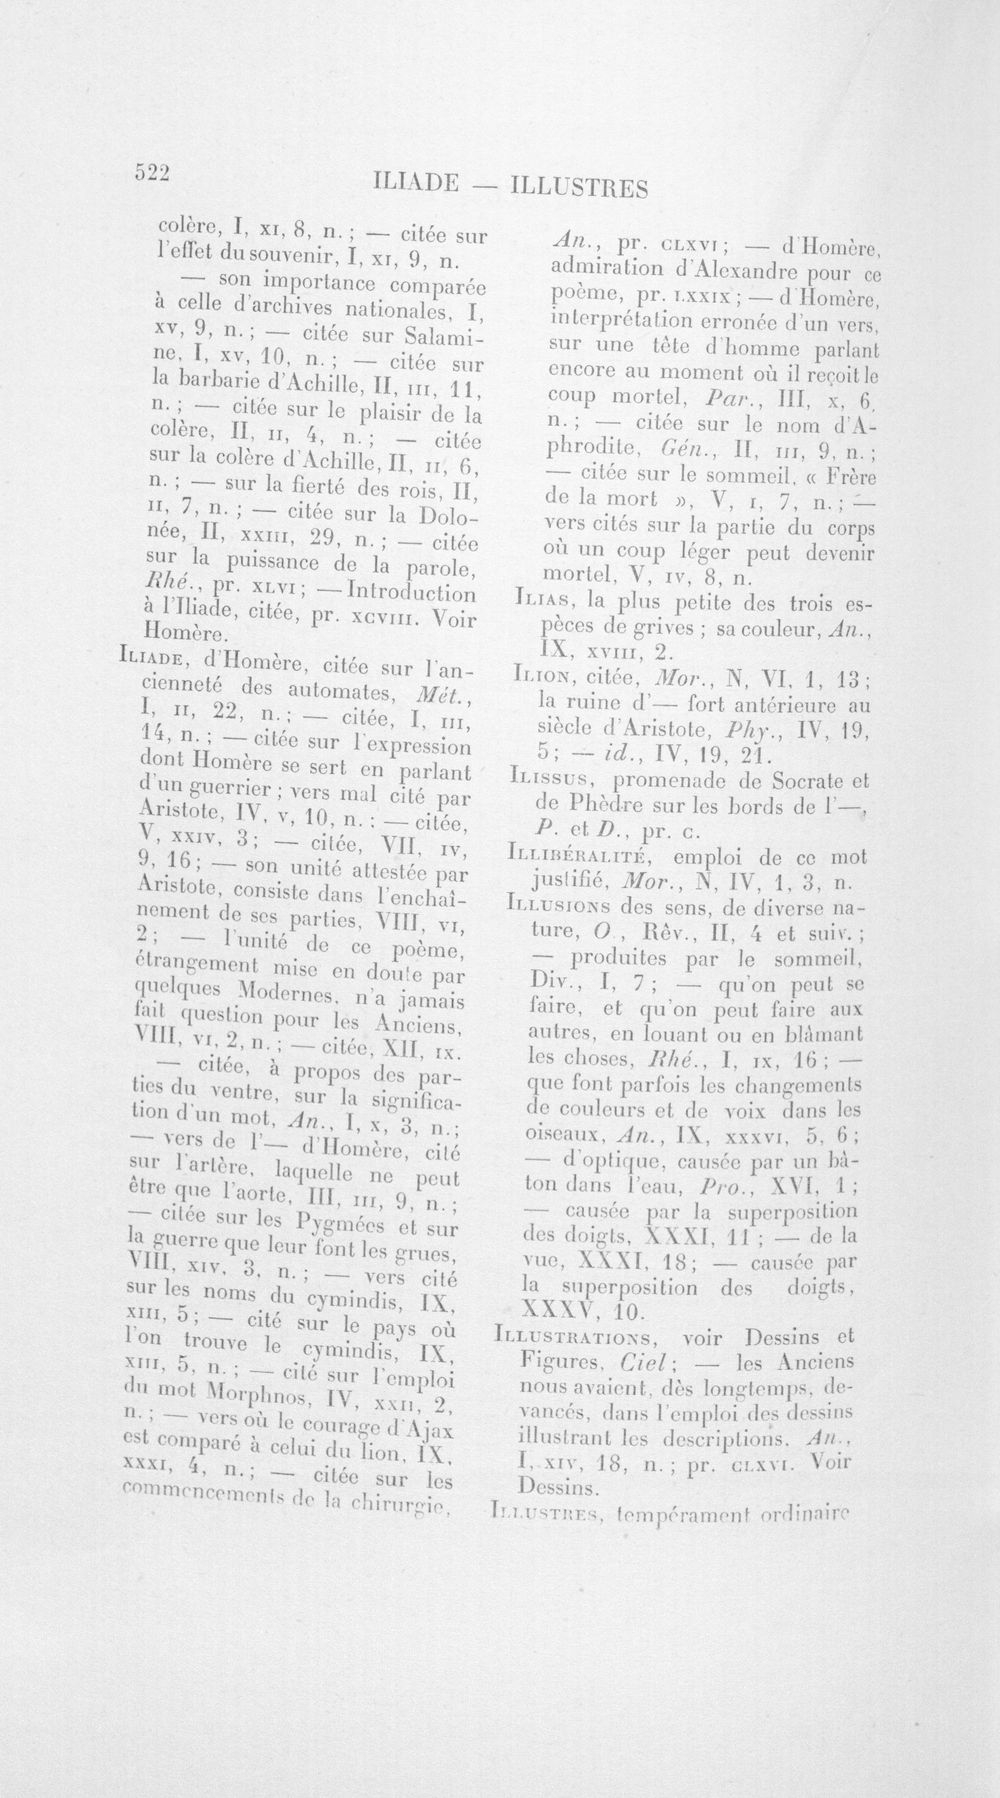 522
ILIADE — ILLUSTRES
colère, I, XI, 8, n. ; — citée sur
l'effet du souvenir, I, XI, 9, n.
— son importance comparée
à celle d'archives nationales, I,
XV, 9, n. ; — citée sur Salami-
ne, I, XV, 10, n. ; — citée sur
la barbarie d'Achille, II, III, 11,
n. ; — citée sur le plaisir de la
colère, II, II, 4, n. ; — citée
sur la colère d'Achille, II, II, 6,
n. ; — sur la fierté des rois, II,
II, 7, n. ; — citée sur la Dolo-
née, II, XXIII, 29, n. ; — citée
sur la puissance de la parole,
Rhé., pr. XLVI ; — Introduction
à l'Iliade, citée, pr. XCVIII. Voir
Homère.
ILIADE, d'Homère, citée sur l'an-
cienneté des automates, Mét.,
I, II, 22, n. ; — citée, I, III,
14, n. ; — citée sur l'expression
dont Homère se sert en parlant
d'un guerrier ; vers mal cité par
Aristote, IV, V, 10, n. : — citée,
V, XXIV, 3 ; — citée, VII, IV,
9, 16 ; — son unité attestée par
Aristote, consiste dans l'enchaî-
nement de ses parties, VIII, VI,
2 ; — l'unité de ce poème,
étrangement mise en doute par
quelques Modernes, n'a jamais
fait question pour les Anciens,
VIII, VI, 2, n. ; — citée, XII, IX.
— citée, à propos des par-
ties du ventre, sur la significa-
tion d'un mot, An., I, X, 3, n. ;
— vers de l'— d'Homère, cité
sur l'artère, laquelle ne peut
être que l'aorte, III, III, 9, n. ;
— citée sur les Pygmées et sur
la guerre que leur font les grues,
VIII, XIV, 3, n. ; — vers cité
sur les noms du cymindis, IX,
XIII, 5 ; — cité sur le pays où
l'on trouve le cymindis, IX,
XIII, 5, n. ; — cité sur l'emploi
du mot Morphnos, IV, XXII, 2,
n. ; — vers où le courage d'Ajax
est comparé à celui du lion, IX,
XXXI, 4, n. ; — citée sur les
commencements de la chirurgie,
An., pr. CLXVI ; — d'Homère,
admiration d'Alexandre pour ce
poème, pr. LXXIX ; — d'Homère,
interprétation erronée d'un vers,
sur une tête d'homme parlant
encore au moment où il reçoit le
coup mortel, Par., III, X, 6,
n. ; — citée sur le nom d'A-
phrodite, Gén., II, III, 9, n. ;
— citée sur le sommeil, « Frère
de la mort », V, I, 7, n. ; —
vers cités sur la partie du corps
où un coup léger peut devenir
mortel, V, IV, 8, n.
ILIAS, la plus petite des trois es-
pèces de grives ; sa couleur, An.,
IX, XVIII, 2.
ILION, citée, Mor., N, VI, 1, 13 ;
la ruine d'— fort antérieure au
siècle d'Aristote, Phy., IV, 19,
5 ; — id., IV, 19, 21.
ILISSUS, promenade de Socrate et
de Phèdre sur les bords de l'—,
P. et D., pr. C.
ILLIBÉRALITÉ, emploi de ce mot
justifié, Mor., N, IV, 1, 3, n.
ILLUSIONS des sens, de diverse na-
ture, O., Rêv., II, 4 et suiv. ;
— produites par le sommeil,
Div., I, 7 ; — qu'on peut se
faire, et qu'on peut faire aux
autres, en louant ou en blâmant
les choses, Rhé., I, IX, 16 ; —
que font parfois les changements
de couleurs et de voix dans les
oiseaux, An., IX, XXXVI, 5, 6 ;
— d'optique, causée par un bâ-
ton dans l'eau, Pro., XVI, 1 ;
— causée par la superposition
des doigts, XXXI, 11 ; — de la
vue, XXXI, 18 ; — causée par
la superposition des doigts,
XXXV, 10.
ILLUSTRATIONS, voir Dessins et
Figures, Ciel ; — les Anciens
nous avaient, dès longtemps, de-
vancés, dans l'emploi des dessins
illustrant les descriptions, An.,
I, XIV, 18, n. ; pr. CLXVI. Voir
Dessins.
ILLUSTRES, tempérament ordinaire